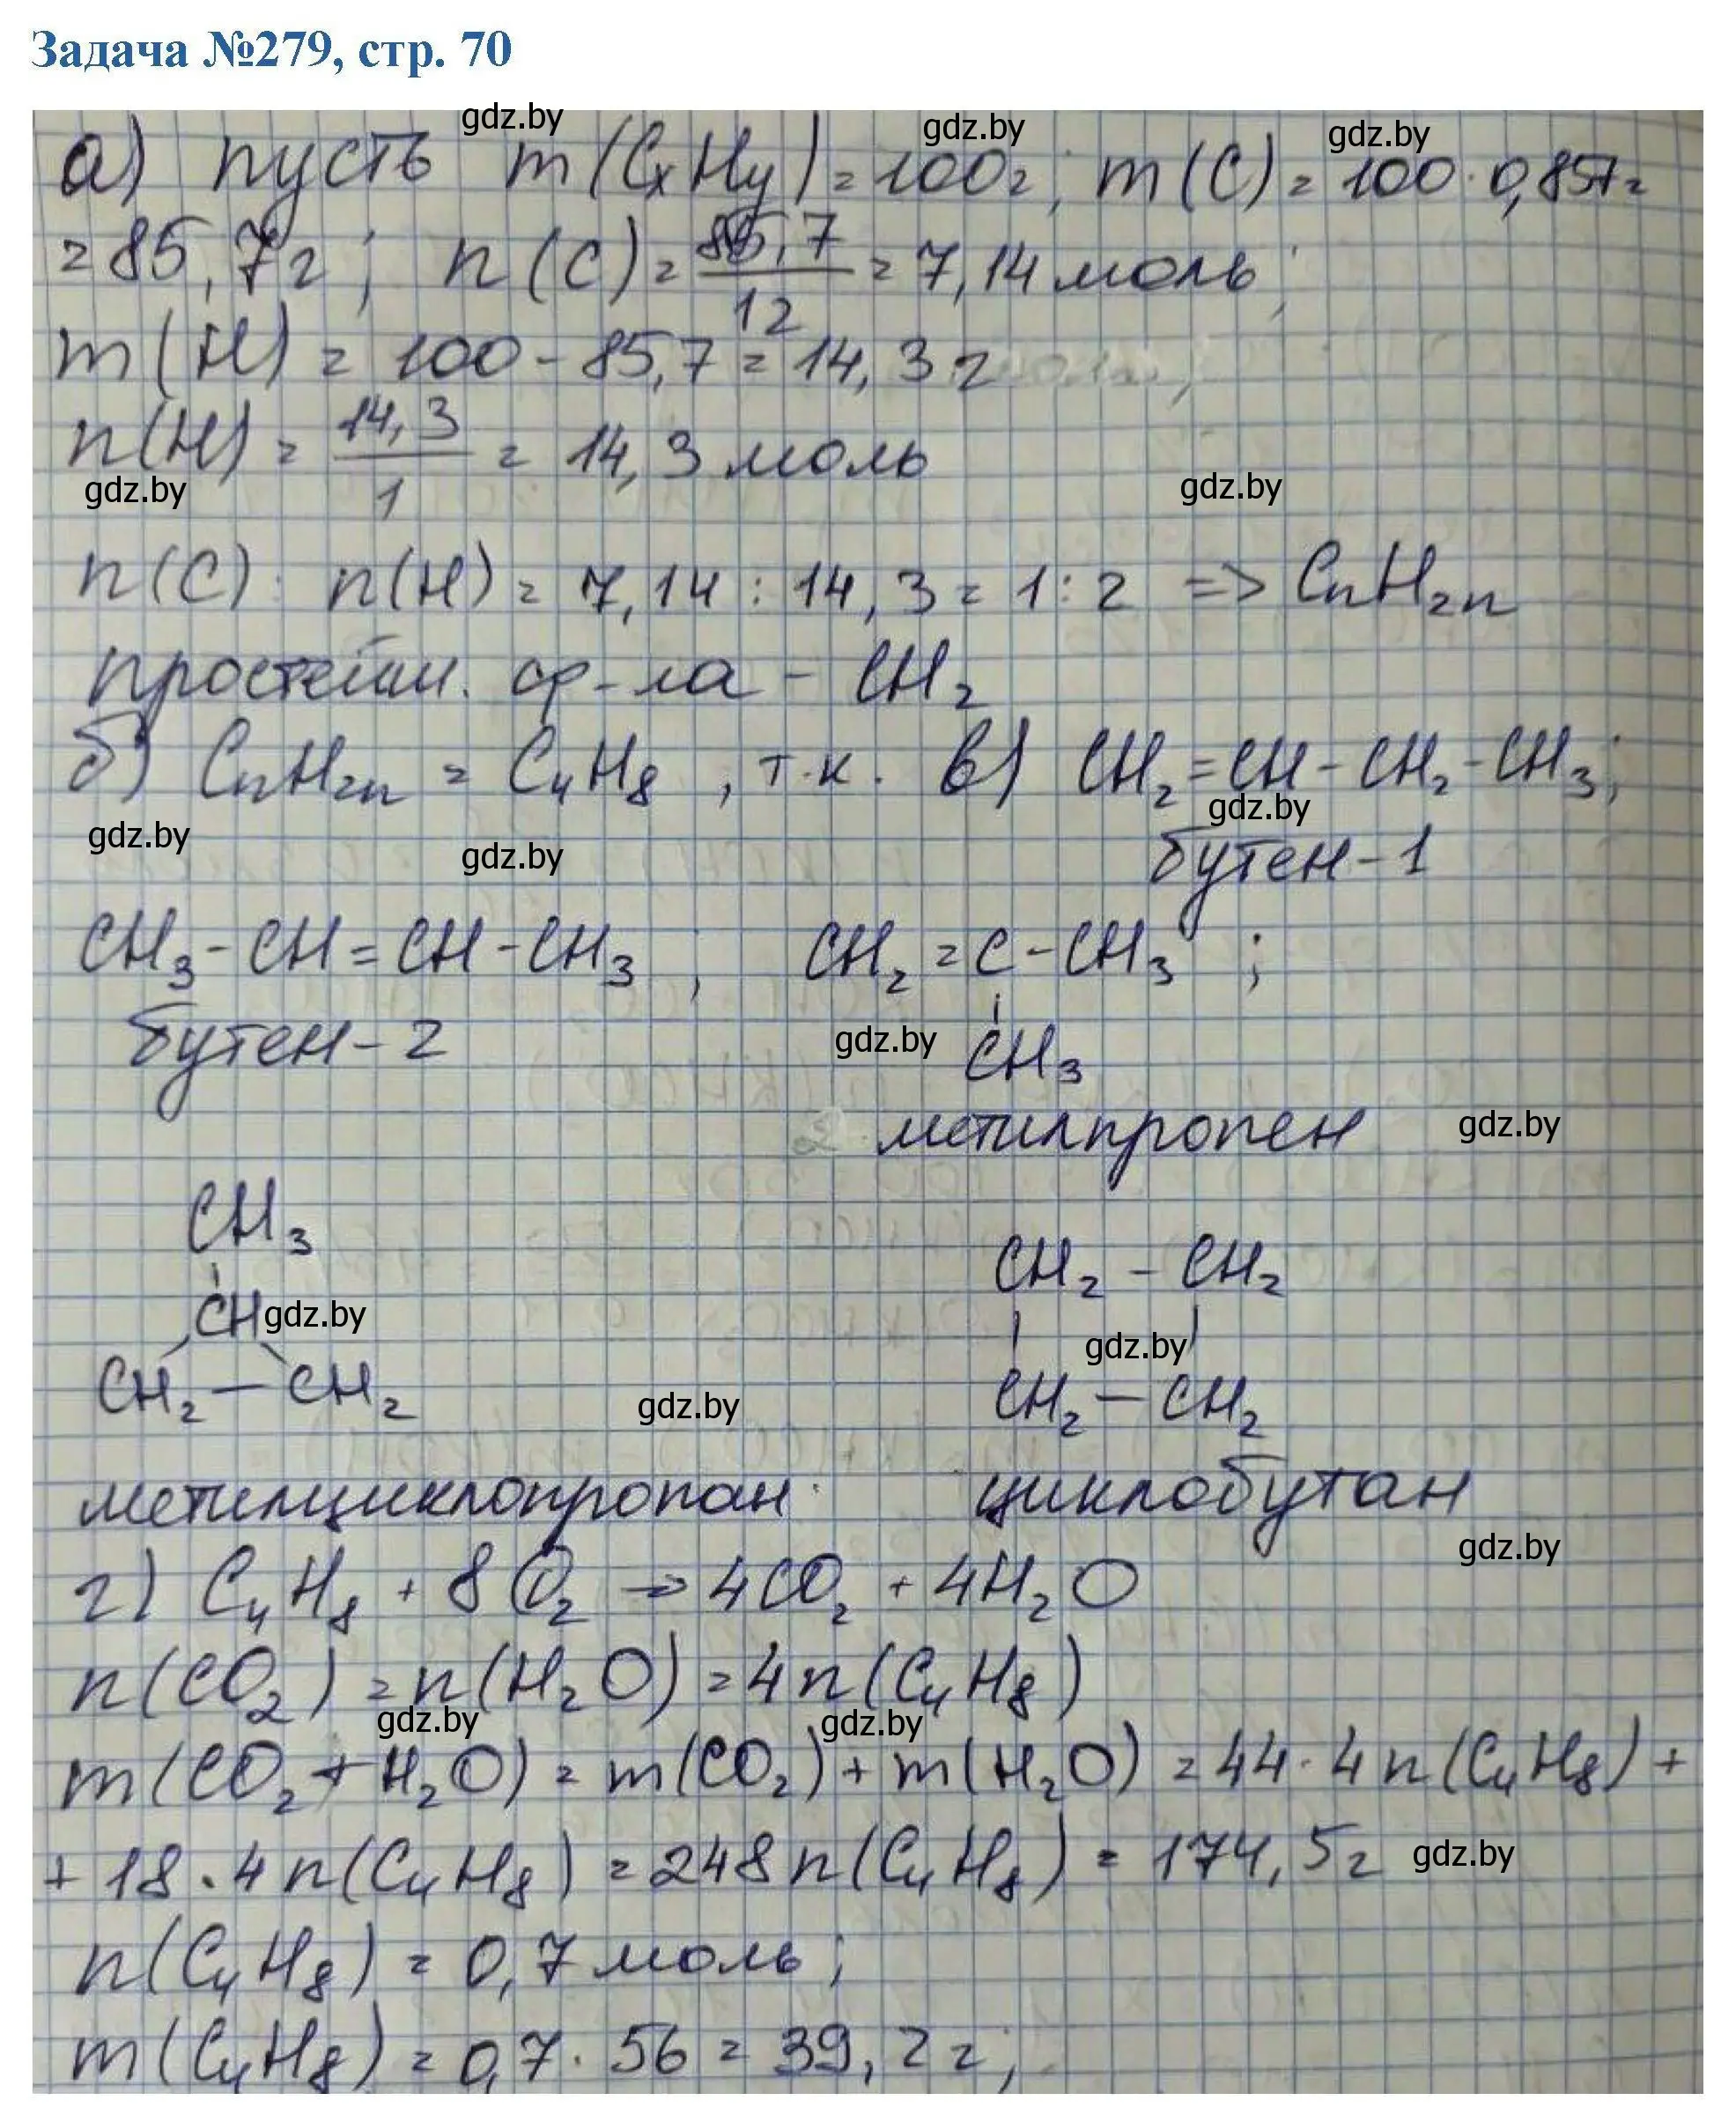 Задача №279, стр. 70
gdz.by gdz.by gdz.by
а) пусть m(CxHy) = 100г; m(C) = 100·0,857=
= 85,7г; n(C) = 85,7/12 = 7,14 моль;
m(H) = 100 - 85,7 = 14,3 г
n(H) = 14,3/1 = 14,3 моль
gdz.by gdz.by
n(C) : n(H) = 7,14 : 14,3 = 1 : 2 => CnH2n
простейш. ф-ла - CH2
б) CnH2n = C4H8, т.к. в) CH2=CH-CH2-CH3;
gdz.by gdz.by gdz.by
бутен-1
CH3-CH=CH-CH3; CH2=C-CH3;
бутен-2 gdz.by CH3
метилпропен gdz.by
CH3
CH gdz.by CH2-CH2
gdz.by
CH2-CH2 gdz.by CH2-CH2
метилциклопропан циклобутан
gdz.by
г) C4H8 + 8O2 → 4CO2 + 4H2O
n(CO2) = n(H2O) = 4n(C4H8)
gdz.by gdz.by
m(CO2+H2O) = m(CO2) + m(H2O) = 44·4n(C4H8) +
+ 18·4n(C4H8) = 248n(C4H8) = 174,5г gdz.by
n(C4H8) = 0,7 моль;
m(C4H8) = 0,7·56 = 39,2г;